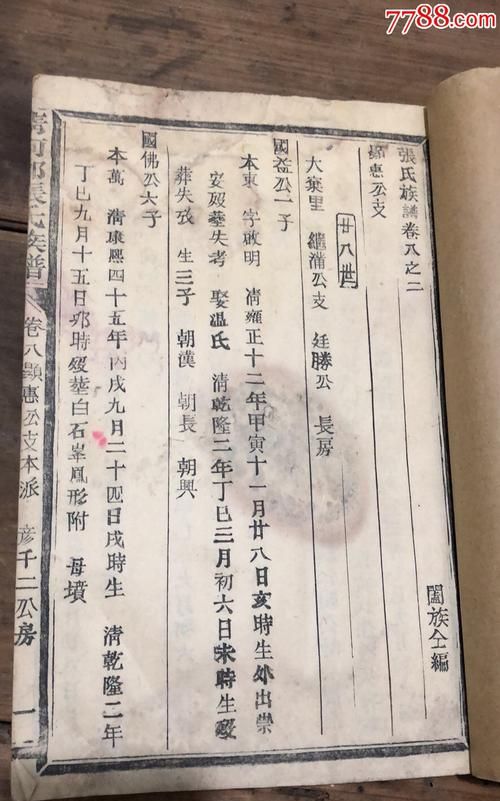 7788.com
張氏族譜卷八之二
闔族仝編
顯惠公支
廿八世
大棠里 繼蒲公支 廷勝公 長房
國益公一子
本東 字啟明 清雍正十二年甲寅十一月廿八日亥時生外出崇
安歿葬失考 娶溫氏 清乾隆二年丁巳三月初六日未時生歿
葬失攷 生三子 朝漢 朝長 朝興
國佛公六子
本萬 清康熙四十五年丙戌九月二十四日戌時生 清乾隆二年
丁巳九月十五日卯時歿葬白石峯鳳形附 母墳
清河郡張氏族譜 卷八顯惠公支本派 彥千二公房 一